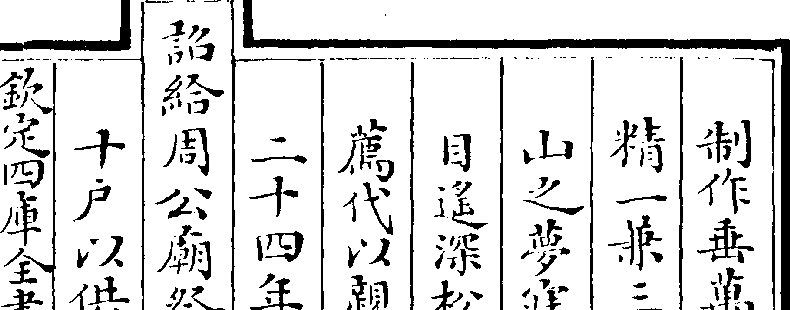 制作垂萬
精一兼三
山之夢寐
目遙深松
薦代以親
二十四年
詔給周公廟祭
十戶以供
欽定四庫全書